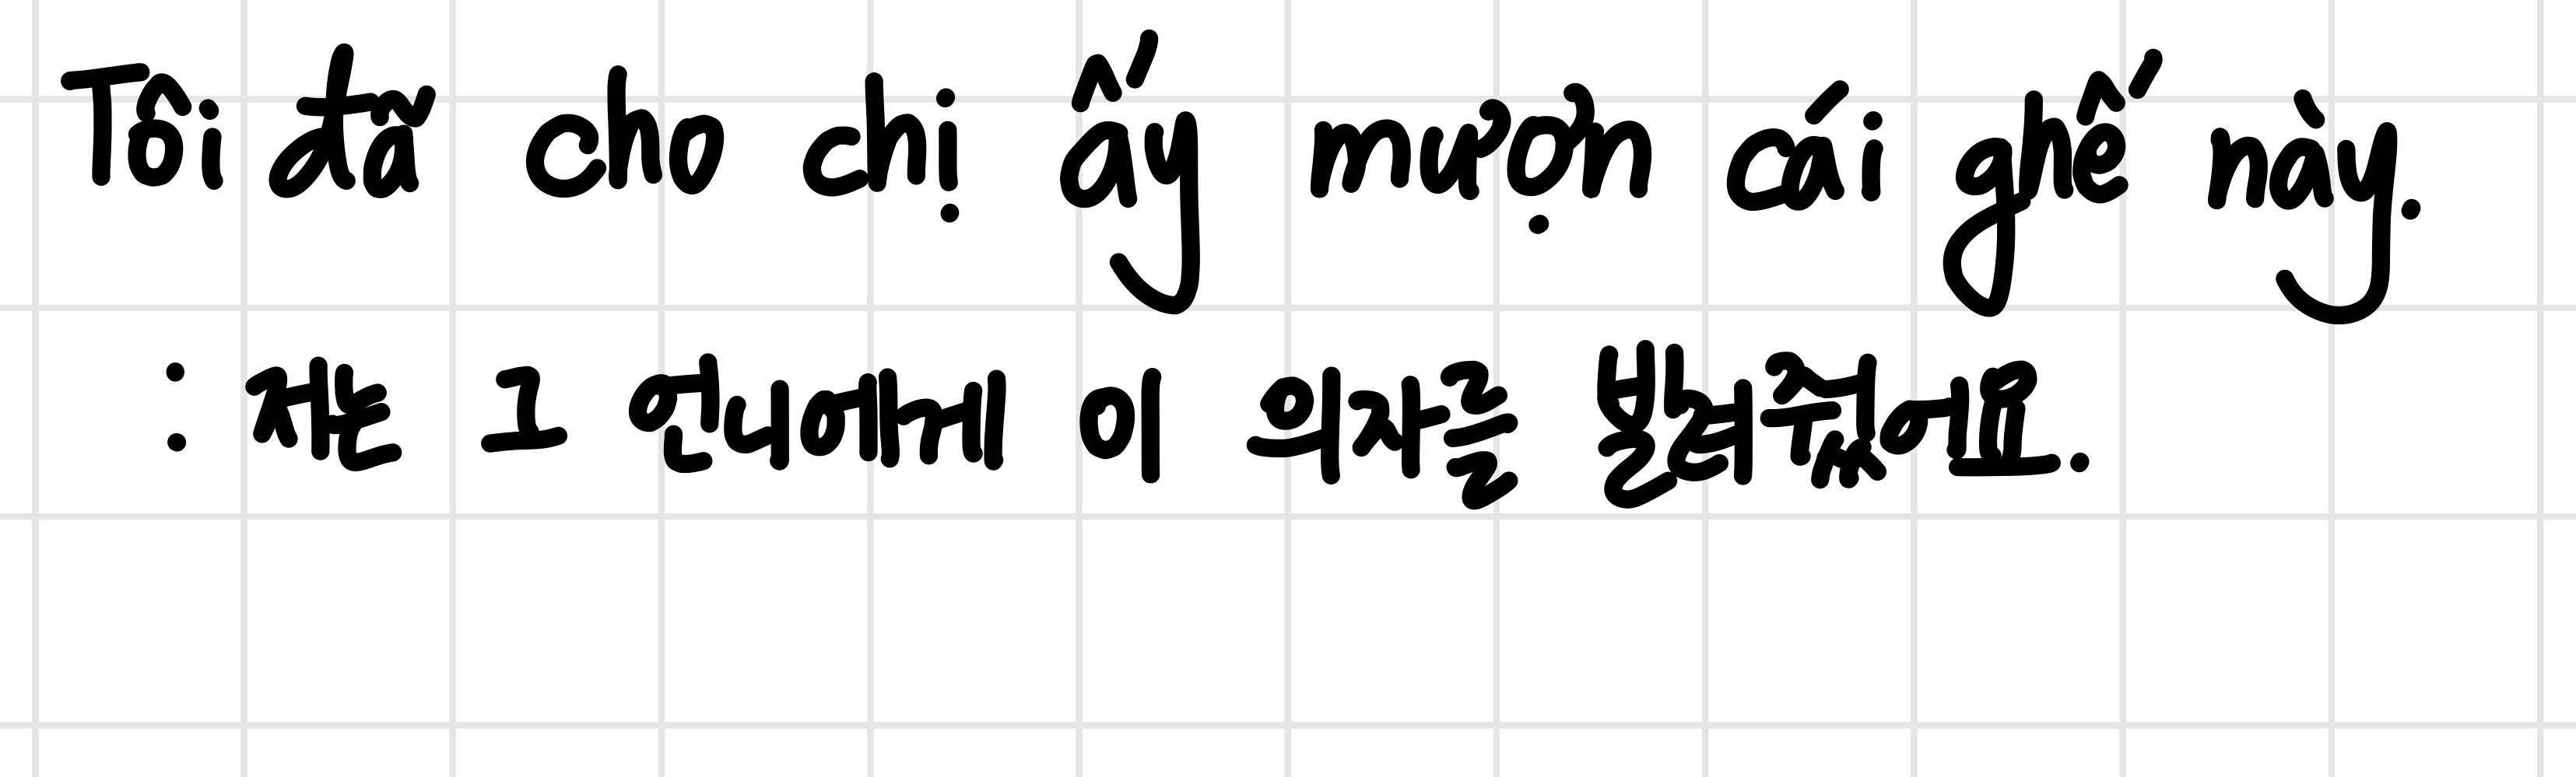 Tôi đã cho chị ấy mượn cái ghế này.
: 저는 그 언니에게 이 의자를 빌려줬어요.